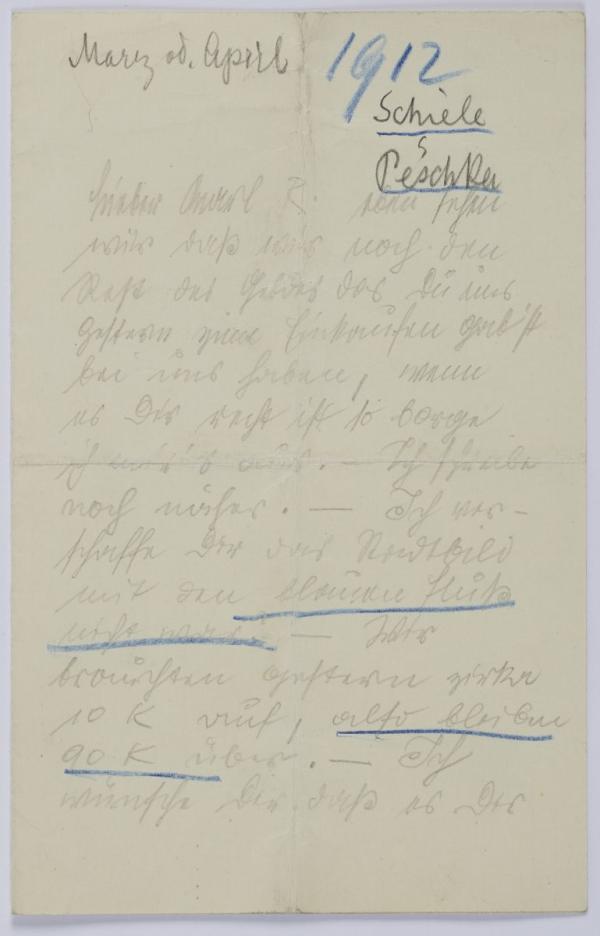 Marz od. April
1912
Schiele
Peschka
Lieber Karl R. eben sehen
wir daß wir noch den
Rest des Geldes das Du uns
gestern zum Einkaufen gab'st
bei uns haben, wenn
es Dir recht ist so borge
ich mir's aus. — Ich schreibe
noch näher. — Ich ver-
schaffe Dir das Stadtbild
mit den blauen Fluß
nicht wahr? — Wir
brauchten gestern zirka
10 K auf, also bleiben
90 K über. — Ich
wünsche Dir daß es Dir